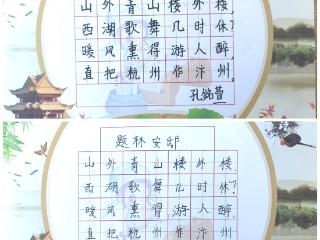 山外青山楼外楼，
西湖歌舞几时休？
暖风熏得游人醉，
直把杭州作汴州。
孔铭萱
题林安邸
山外青山楼外楼，
西湖歌舞几时休？
暖风熏得游人醉，
直把杭州作汴州